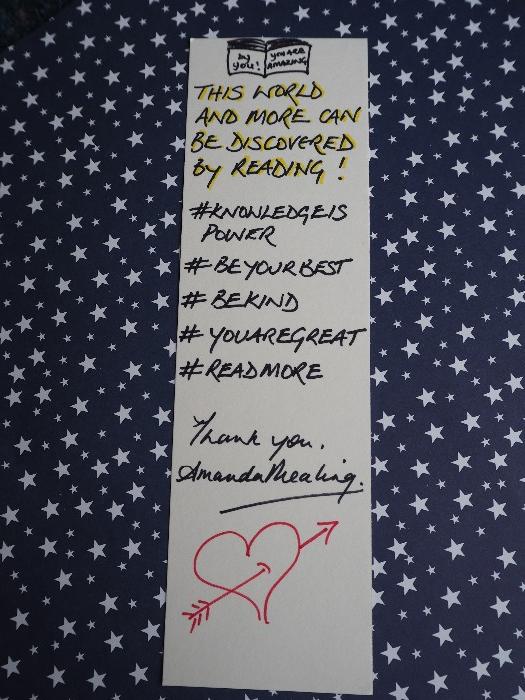 by you!
YOU ARE AMAZING
THIS WORLD
AND MORE CAN
BE DISCOVERED
by READING!
#KNOWLEDGEIS
POWER
#BEYOURBEST
#BEKIND
#YOUAREGREAT
#READMORE
Thank you.